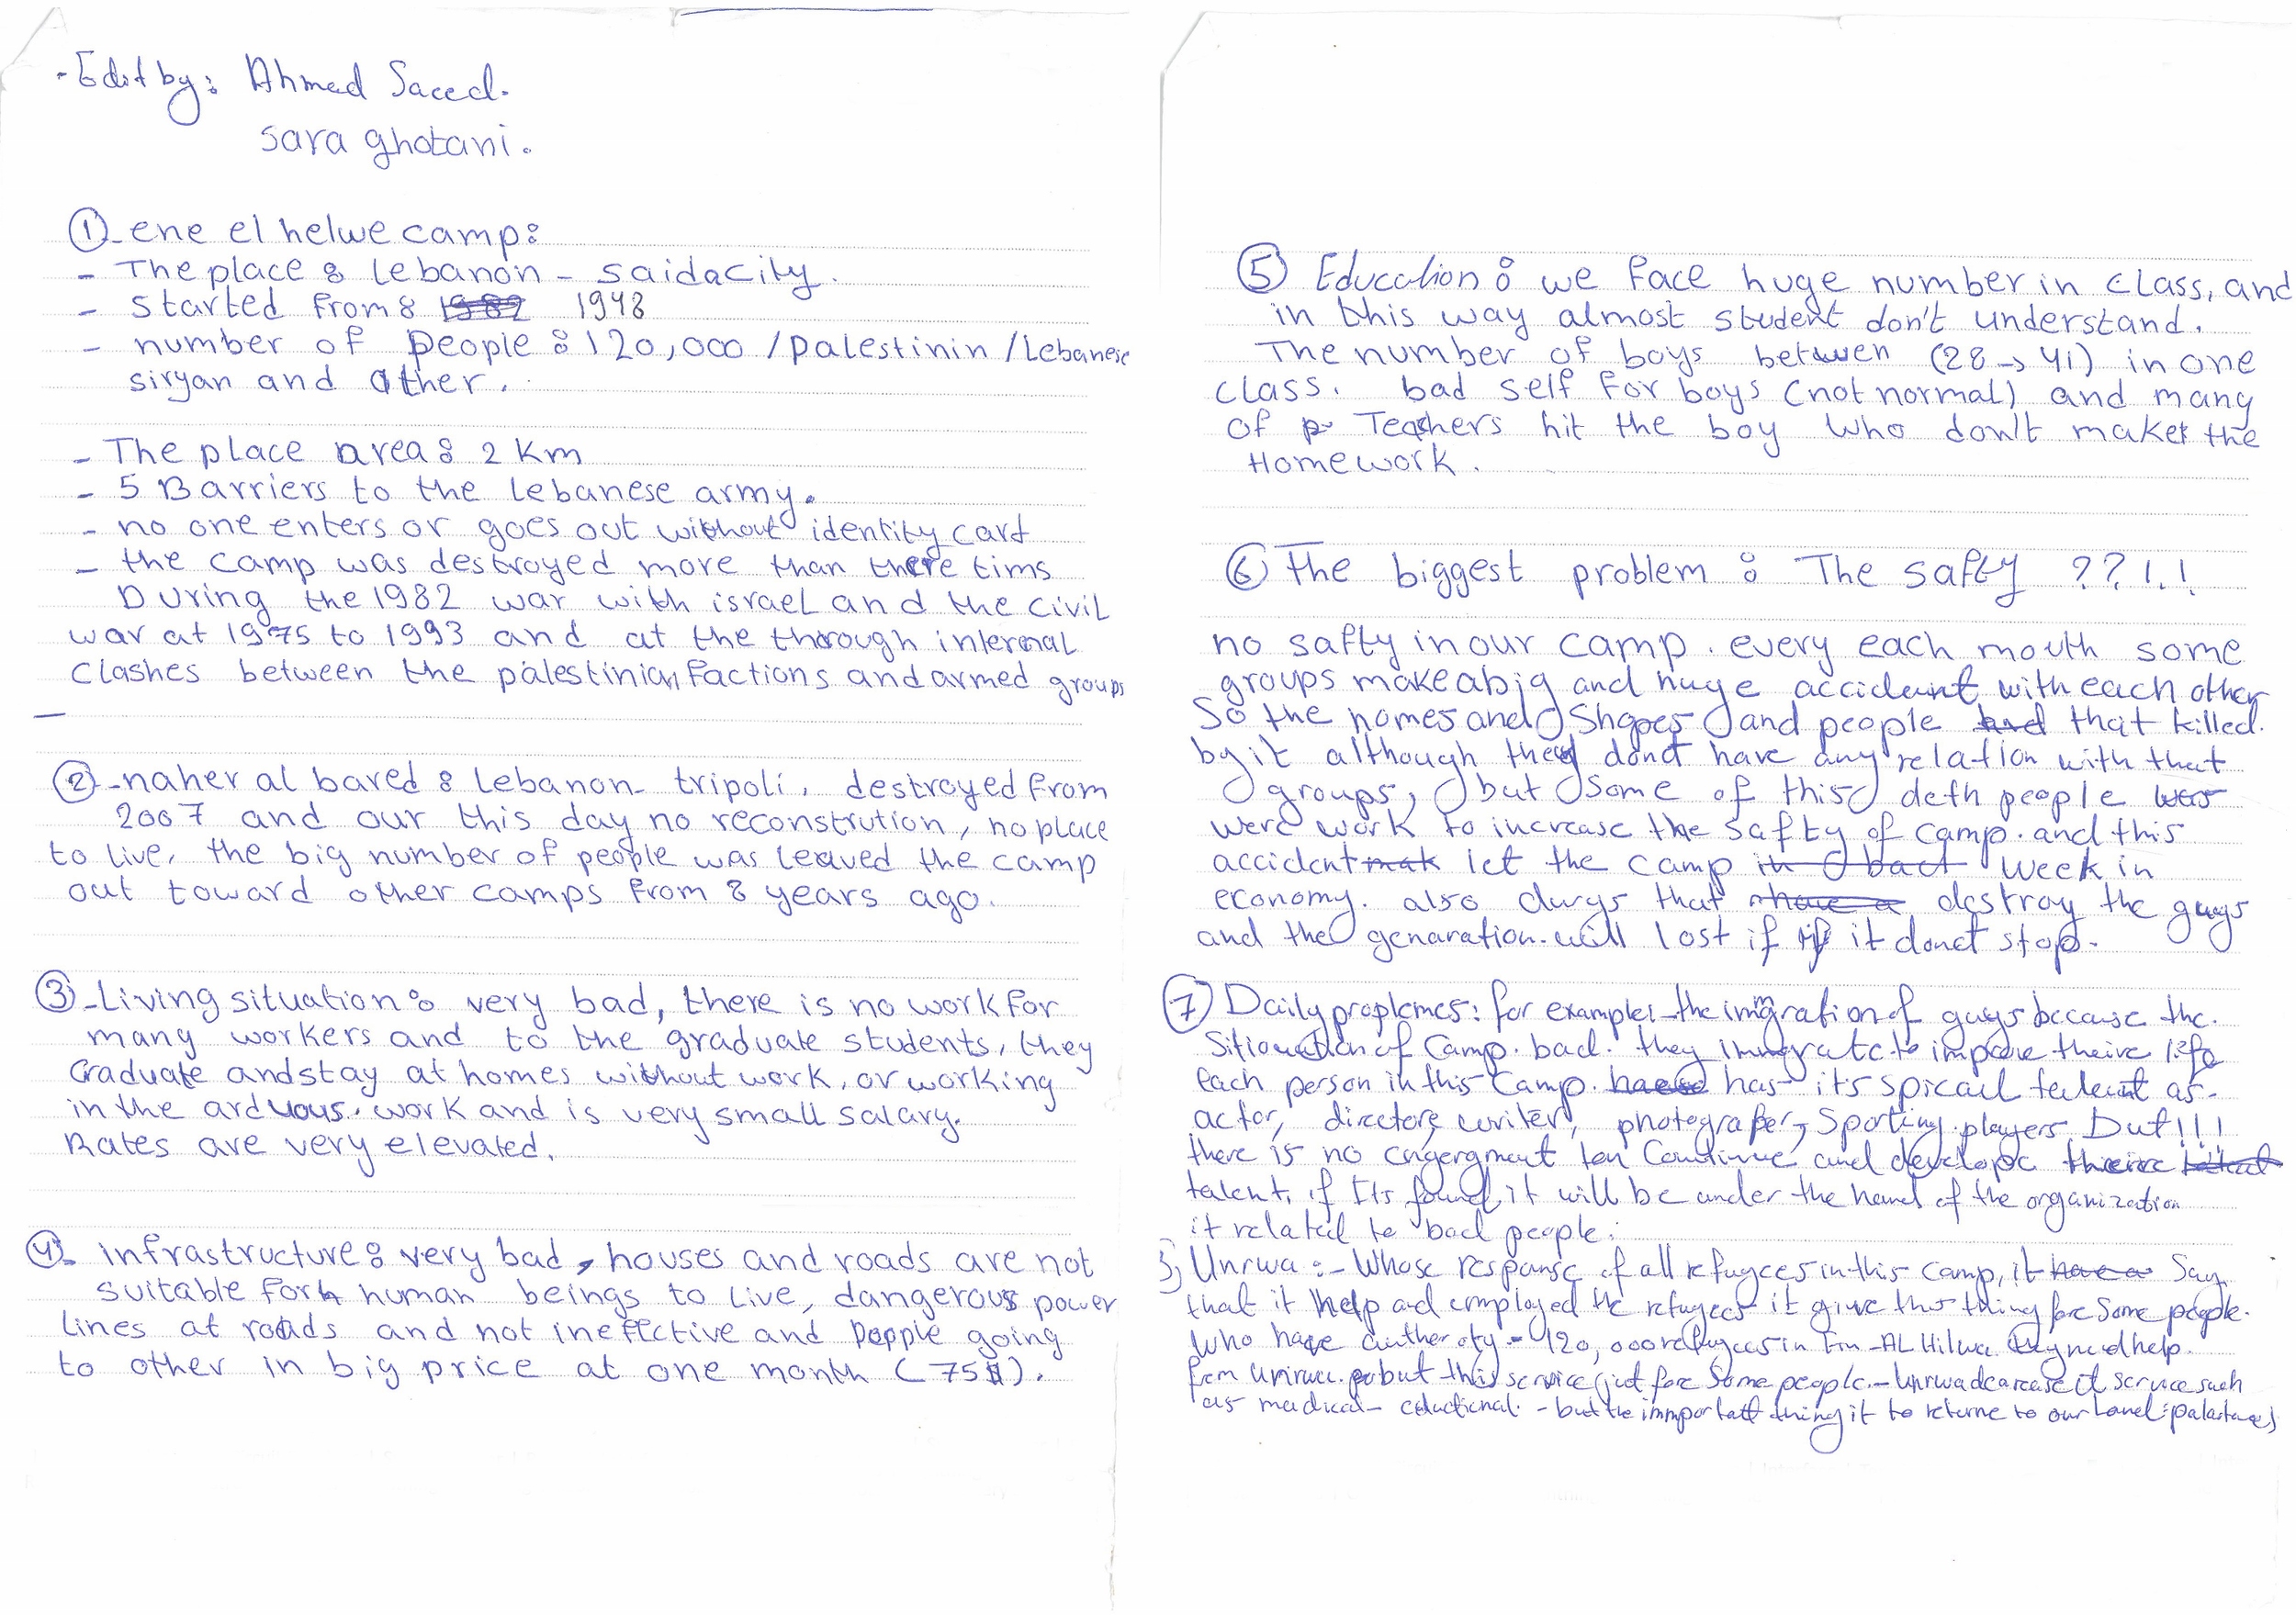 - Edit by: Ahmed Saeed.
sara ghotani.
① - ene el helwe camp:
- The place : lebanon - saida city.
- started from : 1982 1948
- number of people : 120,000 / palestinin / Lebanese
siryan and other.
- The place area : 2 Km
- 5 Barriers to the lebanese army.
- no one enters or goes out without identity card
- the camp was destroyed more than there tims
During the 1982 war with israel and the civil
war at 1975 to 1993 and at the through internal
clashes between the palestinian factions and armed groups
-
② - naher al bared : lebanon - tripoli, destroyed from
2007 and our this day no reconstrution, no place
to live, the big number of people was leaved the camp
out toward other camps from 8 years ago.
③ - Living situation : very bad, there is no work for
many workers and to the graduate students, they
Graduate and stay at homes without work, or working
in the arduous work and is very small salary.
Rates are very elevated.
④ - infrastructure : very bad, houses and roads are not
suitable for human beings to live, dangerous power
lines at roads and not ineffictive and people going
to other in big price at one month (75$).
⑤ Education : we face huge number in class, and
in this way almost student don't understand.
The number of boys betwen (28 → 41) in one
class. bad self for boys (not normal) and many
of Teachers hit the boy who don't make the
Homework.
⑥ The biggest problem : The safty ??!.!
no safty in our camp. every each mouth some
groups make a big and huge accident with each other
So the homes and Shopes and people that killed.
by it although they donot have any relation with that
groups, but some of this deth people was
were work to increase the safty of camp. and this
accident let the camp in bad week in
economy. also durgs that have a destroy the guys
and the genaration will lost if it donot stop.
⑦ Daily proplemes: for example: the immgration of guys because the.
Sitiouation of Camp. bad. they immgrate to improve theire life
each person in this Camp. has its spicail telent as.
actor, directore, writer, photografer, Sporting players, But!!!
there is no to Continue and develope theire
talent, if its found it will be under the hand of the organization
it related to bad people.
Unrwa :- Whose response of all refugees in this camp, it Say
that it help and employed the refugees it give this thing for some people.
who have autheroty - 120,000 refugees in Ein -AL Hilwa they need help.
from but this service just for Some people. - Unrwa dcarease it service such
as madical - - but the immportatt thing it to returne to our Land: